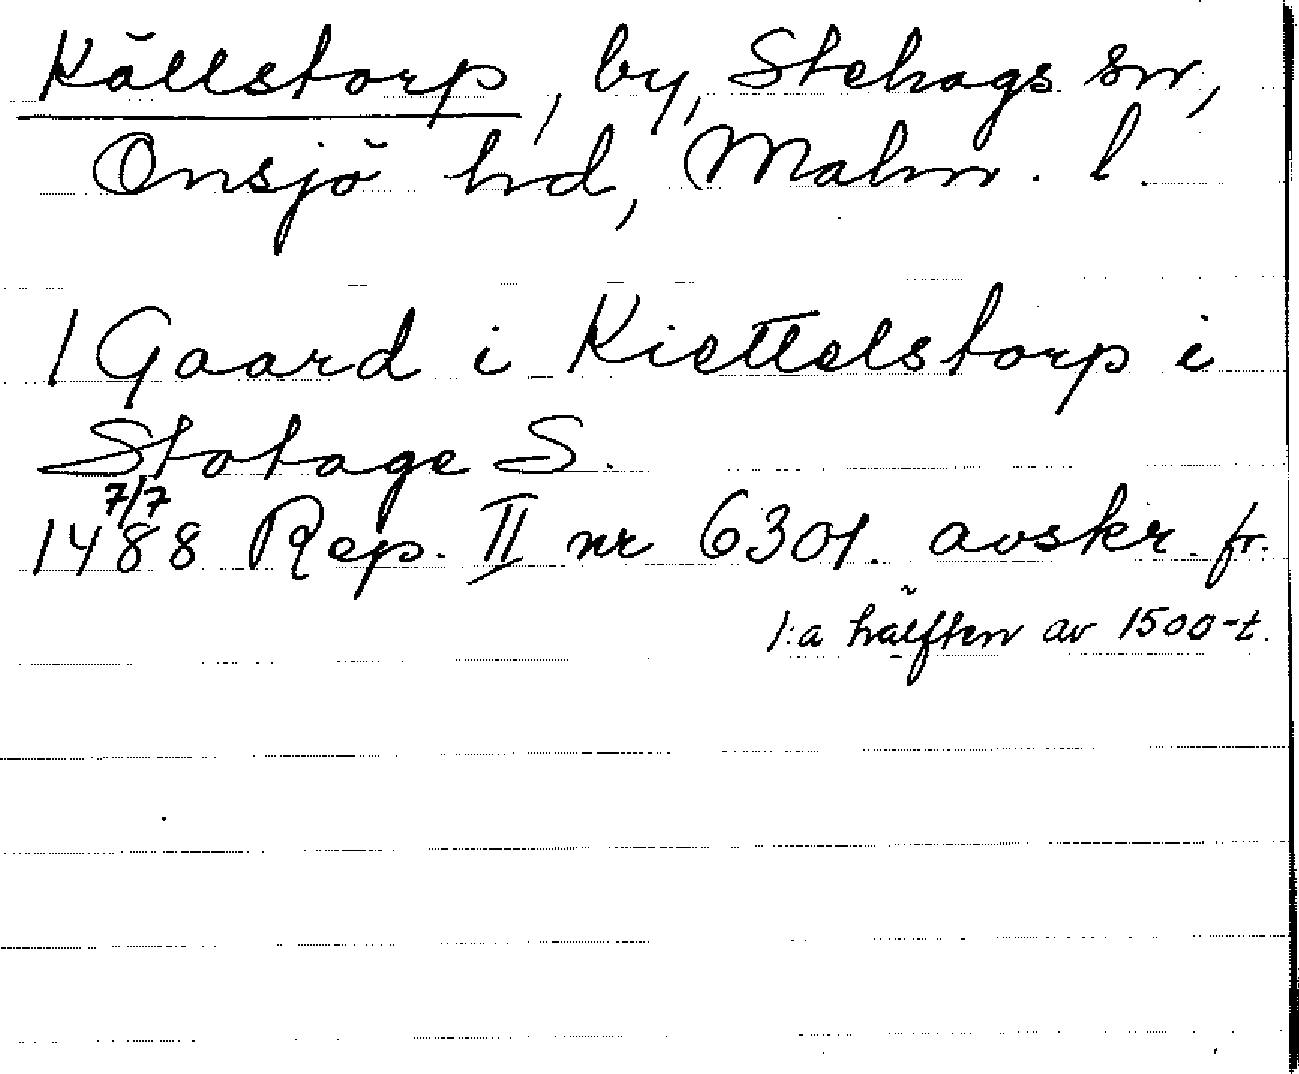 Källstorp, by, Stehags sn,
Onsjö hd, Malm. l.
1 Gaard i Kiettelstorp i
Stohage S.
7/7
1488 Rep. II nr 6301. avskr. fr.
1:a hälften av 1500-t.